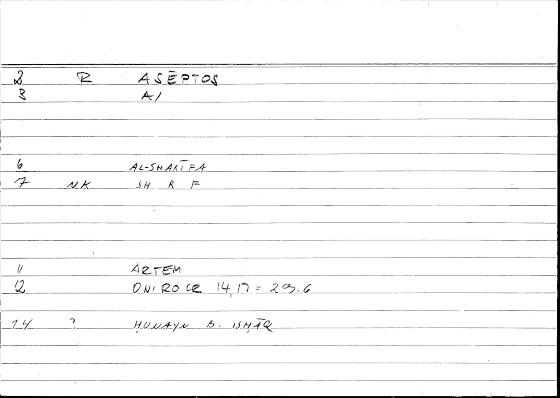 2 R ASĒPTOS
3 A/
6 AL-SHARĪFA
7 NK SH R F
11 ARTEM
12 ONIROCR 14,17 = 29.6
14 ? ḤUNAYN B. ISḤĀQ